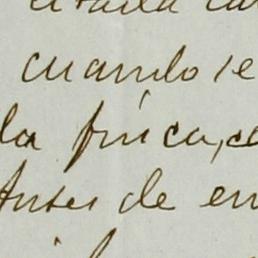 cuando se
la finca, 
Antes de en